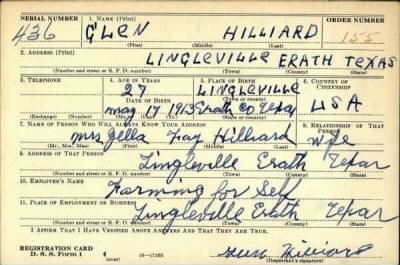 SERIAL NUMBER 1. NAME (Print) ORDER NUMBER
436 GLEN HILLIARD 155
(First) (Middle) (Last)
2. ADDRESS (Print)
LINGLEVILLE ERATH TEXAS
(Number and street or R. F. D. number) (Town) (County) (State)
3. TELEPHONE 4. AGE IN YEARS 5. PLACE OF BIRTH 6. COUNTRY OF CITIZENSHIP
27 LINGLEVILLE
DATE OF BIRTH (Town or county)
May 17 1913 Erath Co Texas USA
(Exchange) (Number) (Mo.) (Day) (Yr.) (State or country)
7. NAME OF PERSON WHO WILL ALWAYS KNOW YOUR ADDRESS 8. RELATIONSHIP OF THAT PERSON
Mrs Fay Hilliard Wife
(Mr., Mrs., Miss) (First) (Middle) (Last)
9. ADDRESS OF THAT PERSON
Lingleville Erath Texas
(Number and street or R. F. D. number) (Town) (County) (State)
10. EMPLOYER'S NAME
Farming for Self
11. PLACE OF EMPLOYMENT OR BUSINESS
Lingleville Erath Texas
(Number and street or R. F. D. number) (Town) (County) (State)
I AFFIRM THAT I HAVE VERIFIED ABOVE ANSWERS AND THAT THEY ARE TRUE.
REGISTRATION CARD
D. S. S. Form 1 16—17105 Glen Hilliard
(Registrant's signature)